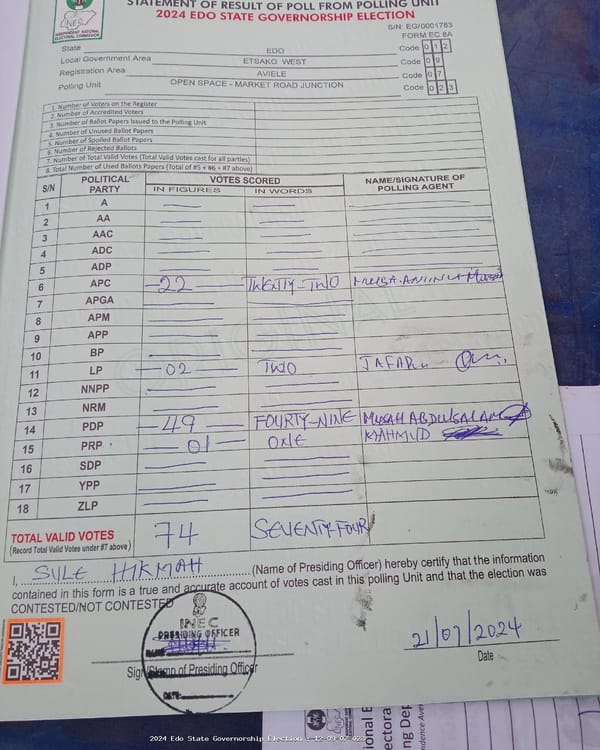 STATEMENT OF RESULT OF POLL FROM POLLING UNIT
2024 EDO STATE GOVERNORSHIP ELECTION
INEC
INDEPENDENT NATIONAL ELECTORAL COMMISSION
S/N: EG/0001783
FORM EC 8A
State EDO Code 0 1 2
Local Government Area ETSAKO WEST Code 0 9
Registration Area AVIELE Code 0 7
Polling Unit OPEN SPACE - MARKET ROAD JUNCTION Code 0 2 3
1. Number of Voters on the Register
2. Number of Accredited Voters
3. Number of Ballot Papers Issued to the Polling Unit
4. Number of Unused Ballot Papers
5. Number of Spoiled Ballot Papers
6. Number of Rejected Ballots
7. Number of Total Valid Votes (Total Valid Votes cast for all parties)
8. Total Number of Used Ballots Papers (Total of #5 + #6 + #7 above)
S/N POLITICAL PARTY VOTES SCORED NAME/SIGNATURE OF POLLING AGENT
IN FIGURES IN WORDS
1 A
2 AA
3 AAC
4 ADC
5 ADP
6 APC 22 TWENTY-TWO MUSA
7 APGA
8 APM
9 APP
10 BP
11 LP 02 TWO JAFARU
12 NNPP
13 NRM
14 PDP 49 FOURTY-NINE MUSAH ABDULSALAM
15 PRP 01 ONE MAHMUD
16 SDP
17 YPP
18 ZLP
TOTAL VALID VOTES 74 SEVENTY FOUR
(Record Total Valid Votes under #7 above)
I, SULE HIKMAH (Name of Presiding Officer) hereby certify that the information
contained in this form is a true and accurate account of votes cast in this polling Unit and that the election was
CONTESTED/NOT CONTESTED
INEC
PRESIDING OFFICER
NAME:
DATE:
Sign/Stamp of Presiding Officer
21/09/2024
Date
2024 Edo State Governorship Election